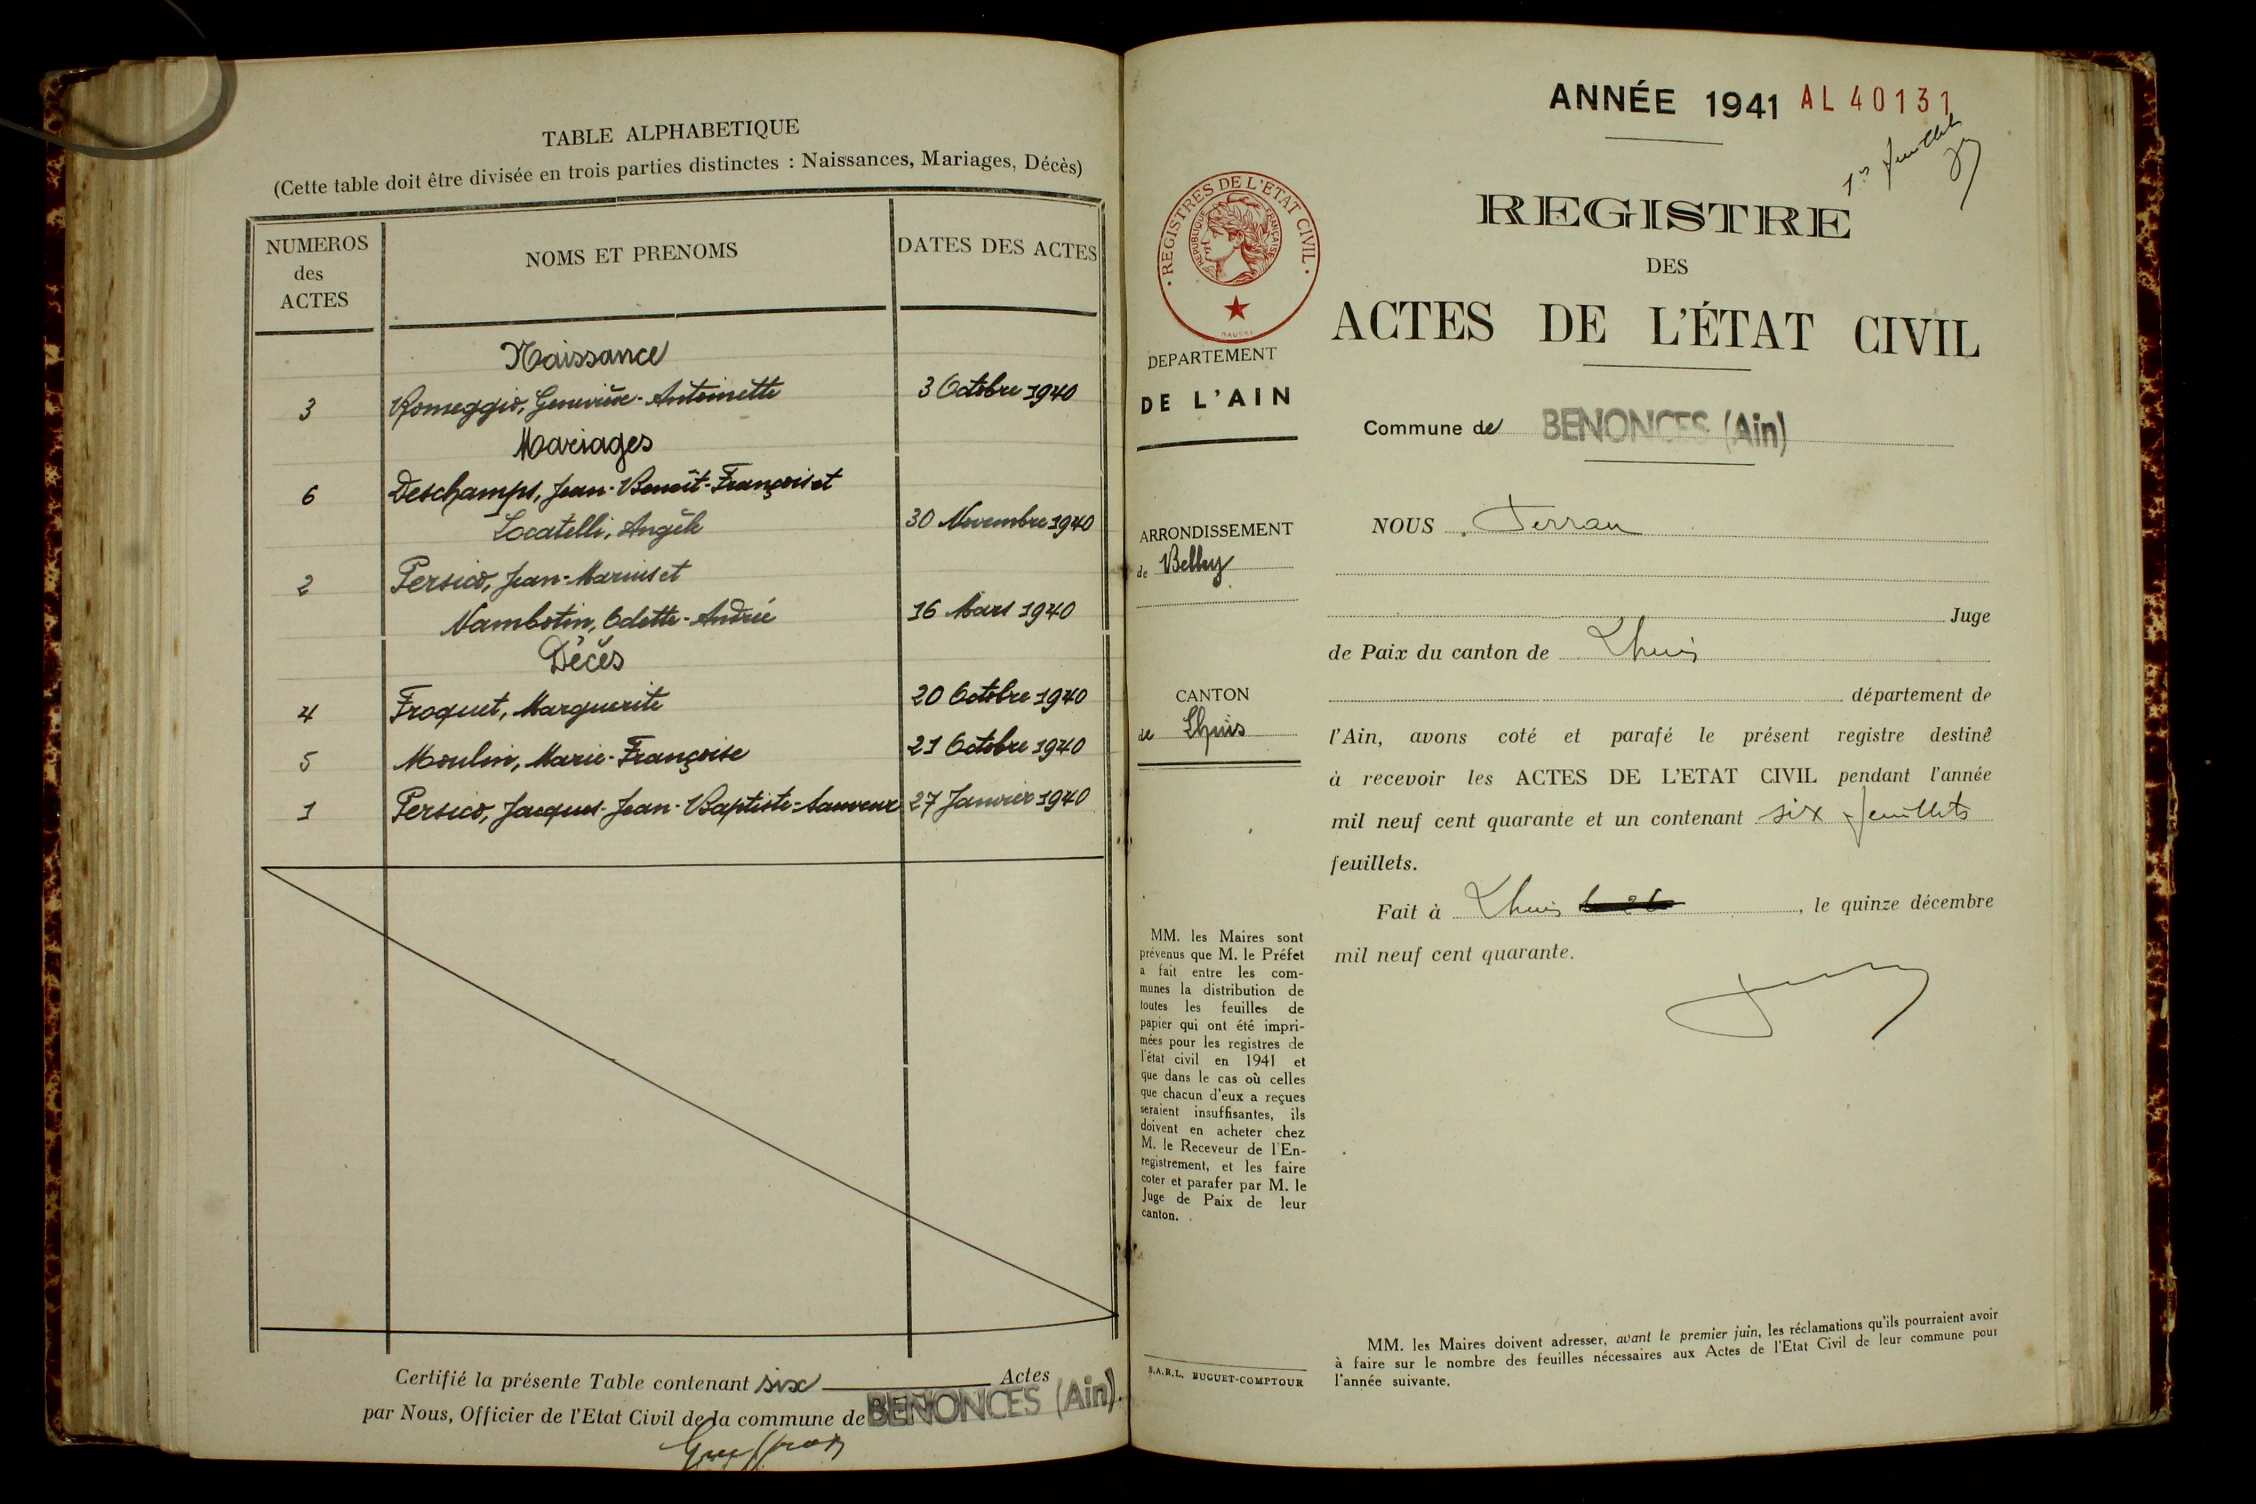 TABLE ALPHABETIQUE
(Cette table doit être divisée en trois parties distinctes : Naissances, Mariages, Décès)
NUMEROS
des
ACTES
NOMS ET PRENOMS
DATES DES ACTES
Naissance
3 Romeggio, Geneviève-Antoinette 3 Octobre 1940
Mariages
6 Deschamps, Jean-Benoît-François et
Locatelli, Angèle 30 Novembre 1940
2 Persico, Jean-Marius et
Nambotin, Odette-Andrée 16 Mars 1940
Décès
4 Froquet, Marguerite 20 Octobre 1940
5 Moulin, Marie-Françoise 21 Octobre 1940
1 Persico, Jacques-Jean-Baptiste-Sauveur 27 Janvier 1940
Certifié la présente Table contenant six Actes
par Nous, Officier de l'Etat Civil de la commune de BENONCES (Ain).
ANNÉE 1941 AL 40131
1er feuillet
REGISTRES DE L'ETAT CIVIL
REPUBLIQUE FRANÇAISE
REGISTRE
DES
ACTES DE L'ÉTAT CIVIL
DEPARTEMENT
DE L'AIN
Commune de BENONCES (Ain)
ARRONDISSEMENT
de Belley
CANTON
de Lhuis
MM. les Maires sont
prévenus que M. le Préfet
a fait entre les com-
munes la distribution de
toutes les feuilles de
papier qui ont été impri-
mées pour les registres de
l'état civil en 1941 et
que dans le cas où celles
que chacun d'eux a reçues
seraient insuffisantes, ils
doivent en acheter chez
M. le Receveur de l'En-
registrement, et les faire
coter et parafer par M. le
Juge de Paix de leur
canton.
S.A.R.L. BUGUET-COMPTOUR
NOUS Ferran
Juge
de Paix du canton de Lhuis
département de
l'Ain, avons coté et parafé le présent registre destiné
à recevoir les ACTES DE L'ETAT CIVIL pendant l'année
mil neuf cent quarante et un contenant six feuillets
feuillets.
Fait à Lhuis, le quinze décembre
mil neuf cent quarante.
MM. les Maires doivent adresser, avant le premier juin, les réclamations qu'ils pourraient avoir
à faire sur le nombre des feuilles nécessaires aux Actes de l'Etat Civil de leur commune pour
l'année suivante.